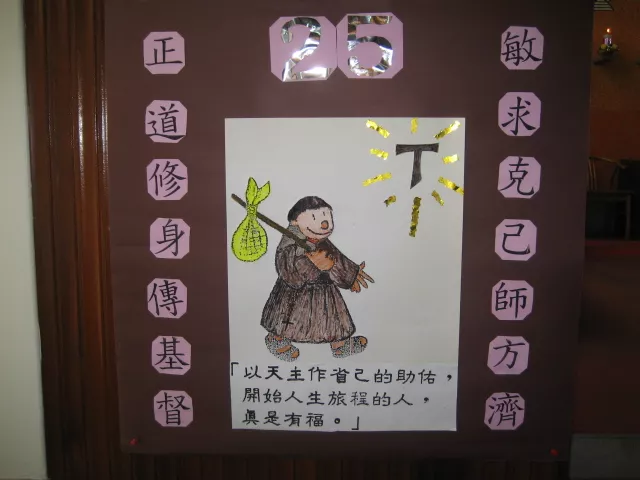 25
敏求克己師方濟
正道修身傳基督
T
「以天主作省己的助佑，
開始人生旅程的人，
真是有福。」